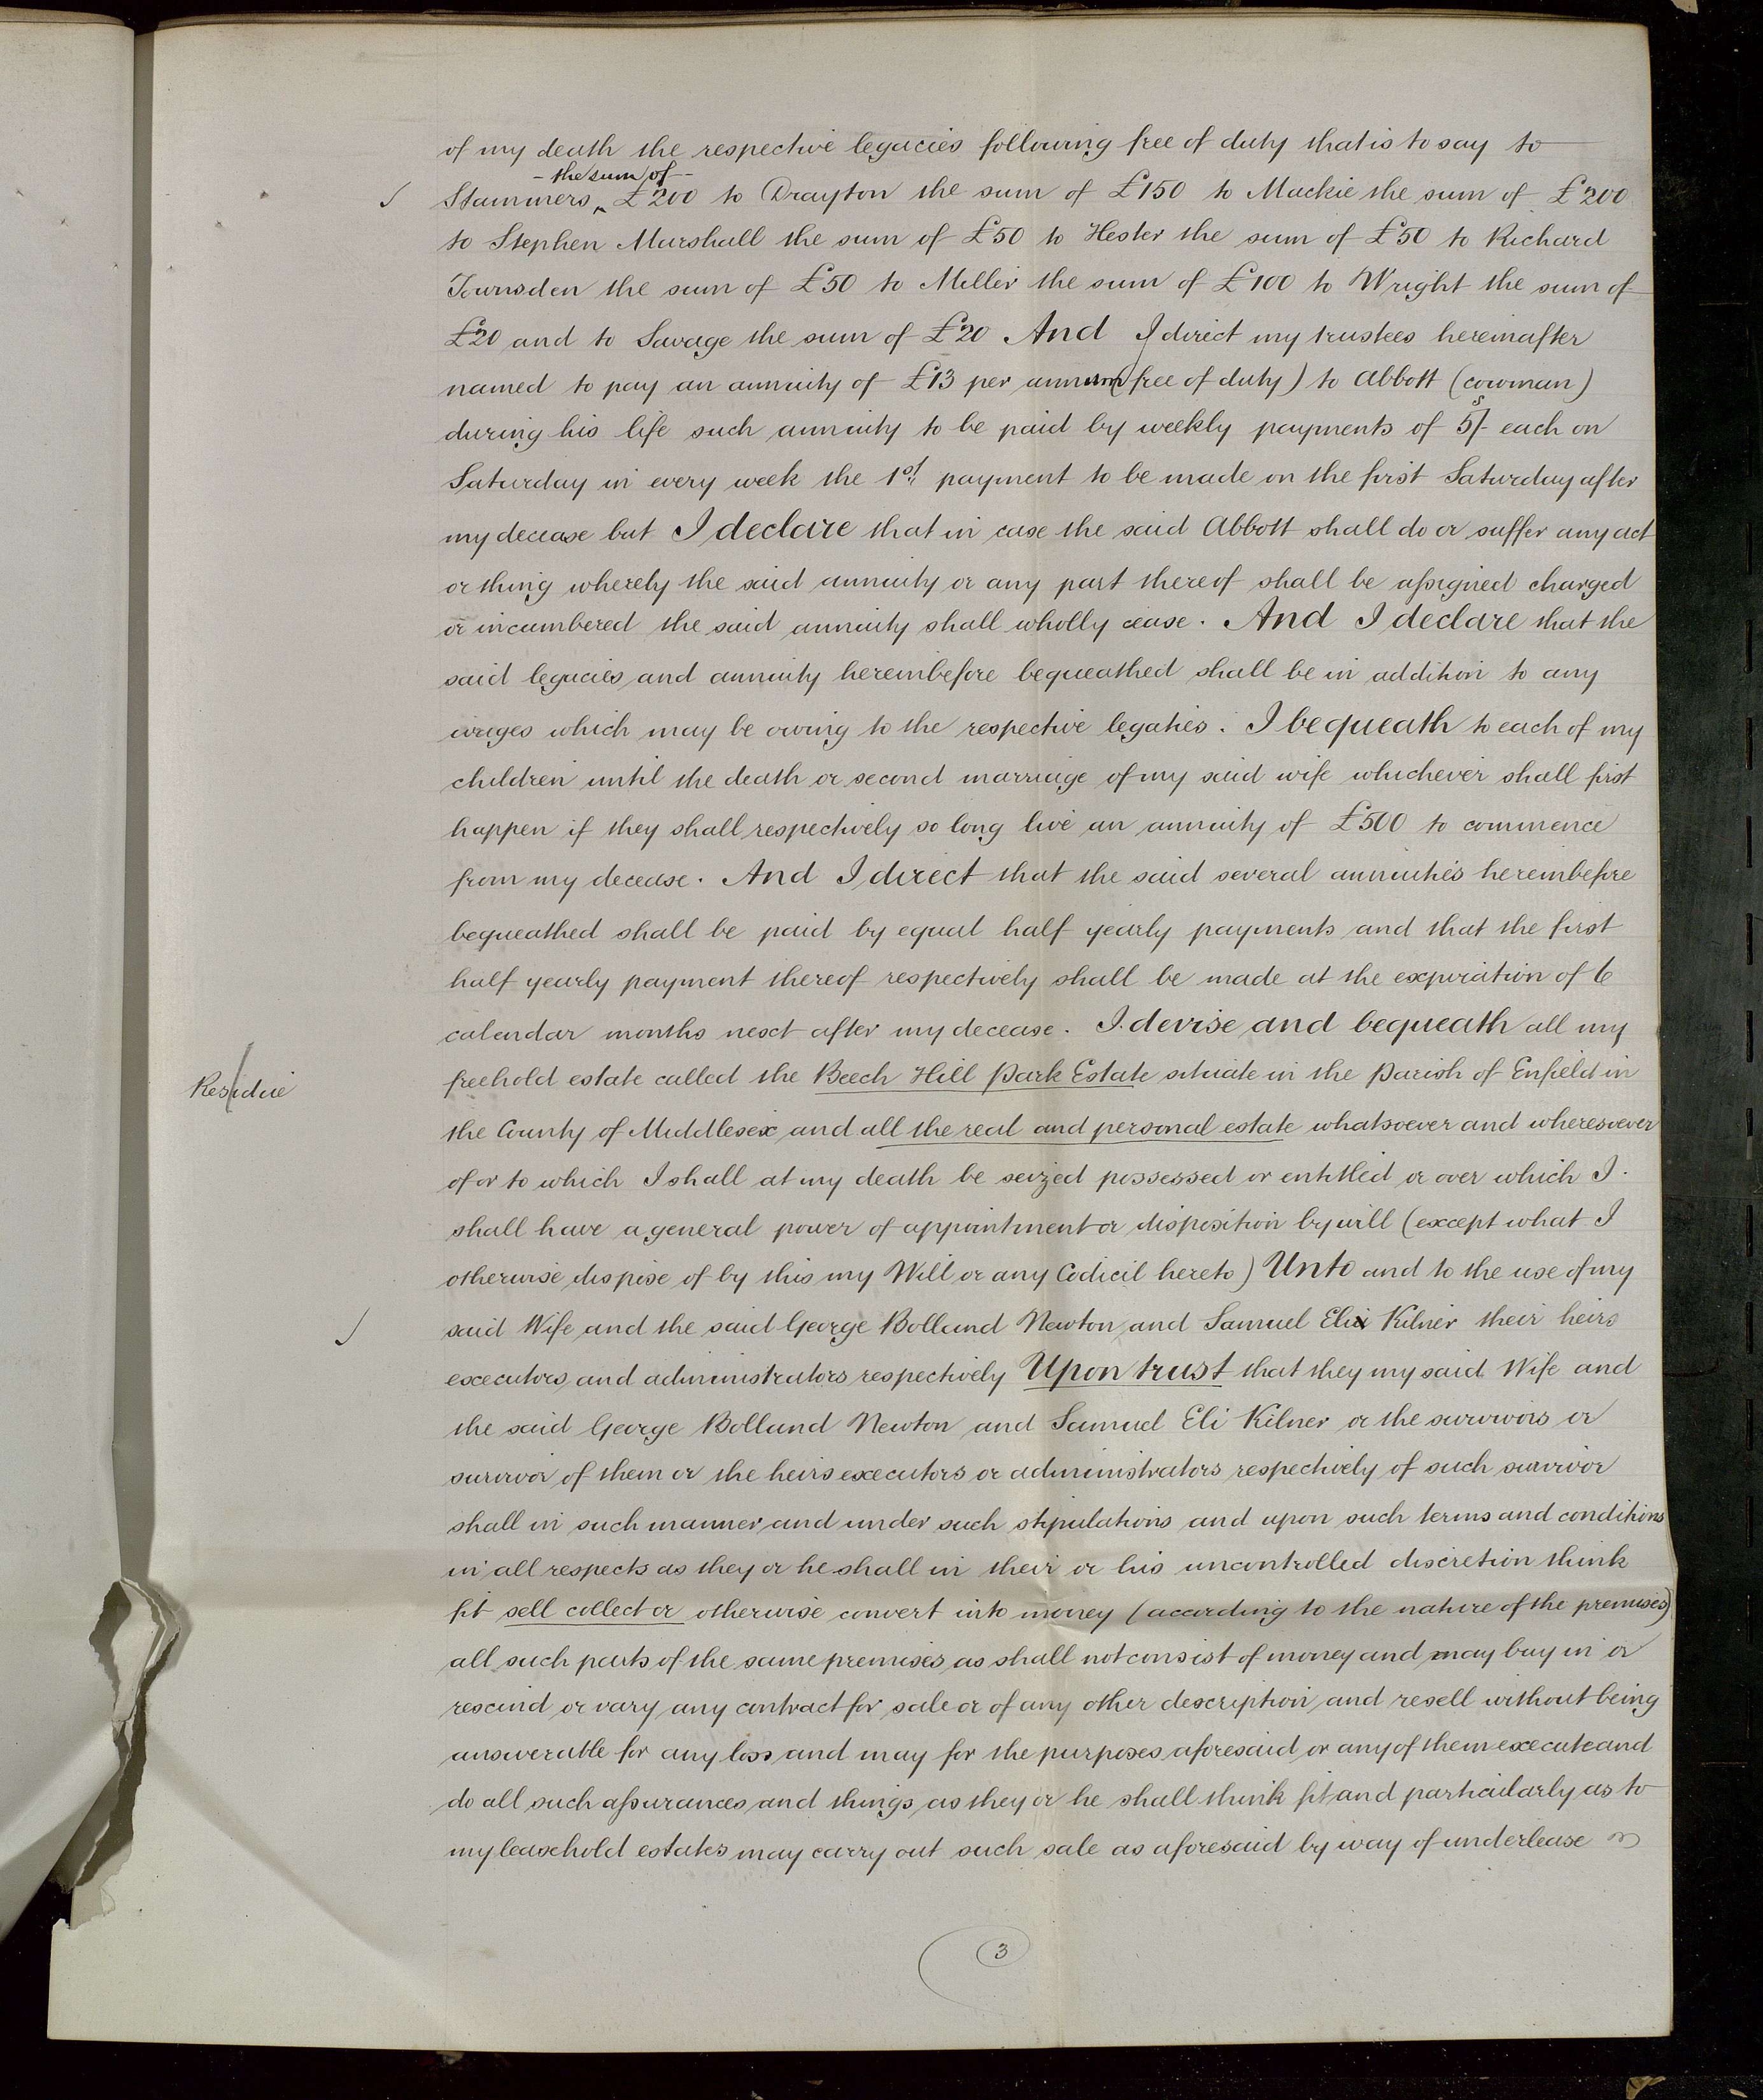 of my death the respective legacies following free of duty that is to say to
- the sum of -
Stammers ‸ £200 to Drayton the sum of £150 to Mackie the sum of £200
to Stephen Marshall the sum of £50 to Hester the sum of £50 to Richard
Townsden the sum of £50 to Miller the sum of £100 to Wright the sum of
£20 and to Savage the sum of £20 And I direct my trustees hereinafter
named to pay an annuity of £13 per annum (free of duty) to Abbott (cowman)
during his life such annuity to be paid by weekly payments of 5s/- each on
Saturday in every week the 1st payment to be made on the first Saturday after
my decease but I declare that in case the said Abbott shall do or suffer any act
or thing whereby the said annuity or any part thereof shall be assigned charged
or incumbered the said annuity shall wholly cease. And I declare that the
said legacies and annuity hereinbefore bequeathed shall be in addition to any
wages which may be owing to the respective legaties. I bequeath to each of my
children until the death or second marriage of my said wife whichever shall first
happen if they shall respectively so long live an annuity of £500 to commence
from my decease. And I direct that the said several annuities hereinbefore
bequeathed shall be paid by equal half yearly payments and that the first
half yearly payment thereof respectively shall be made at the expiration of 6
calendar months next after my decease. I devise and bequeath all my
Residue
freehold estate called the Beech Hill Park Estate situate in the Parish of Enfield in
the County of Middlesex and all the real and personal estate whatsoever and wheresoever
of or to which I shall at my death be seized possessed or entitled or over which I
shall have a general power of appointment or disposition by will (except what I
otherwise dispose of by this my Will or any Codicil hereto) Unto and to the use of my
said Wife and the said George Bolland Newton and Samuel Eli Kilner their heirs
executors and administrators respectively Upon trust that they my said Wife and
the said George Bolland Newton and Samuel Eli Kilner or the survivors or
survivor of them or the heirs executors or administrators respectively of such survivor
shall in such manner and under such stipulations and upon such terms and conditions
in all respects as they or he shall in their or his uncontrolled discretion think
fit sell collect or otherwise convert into money (according to the nature of the premises)
all such parts of the same premises as shall not consist of money and may buy in or
rescind or vary any contract for sale or of any other description and resell without being
answerable for any loss and may for the purposes aforesaid or any of them execute and
do all such assurances and things as they or he shall think fit and particularly as to
my leasehold estates may carry out such sale as aforesaid by way of underlease
3